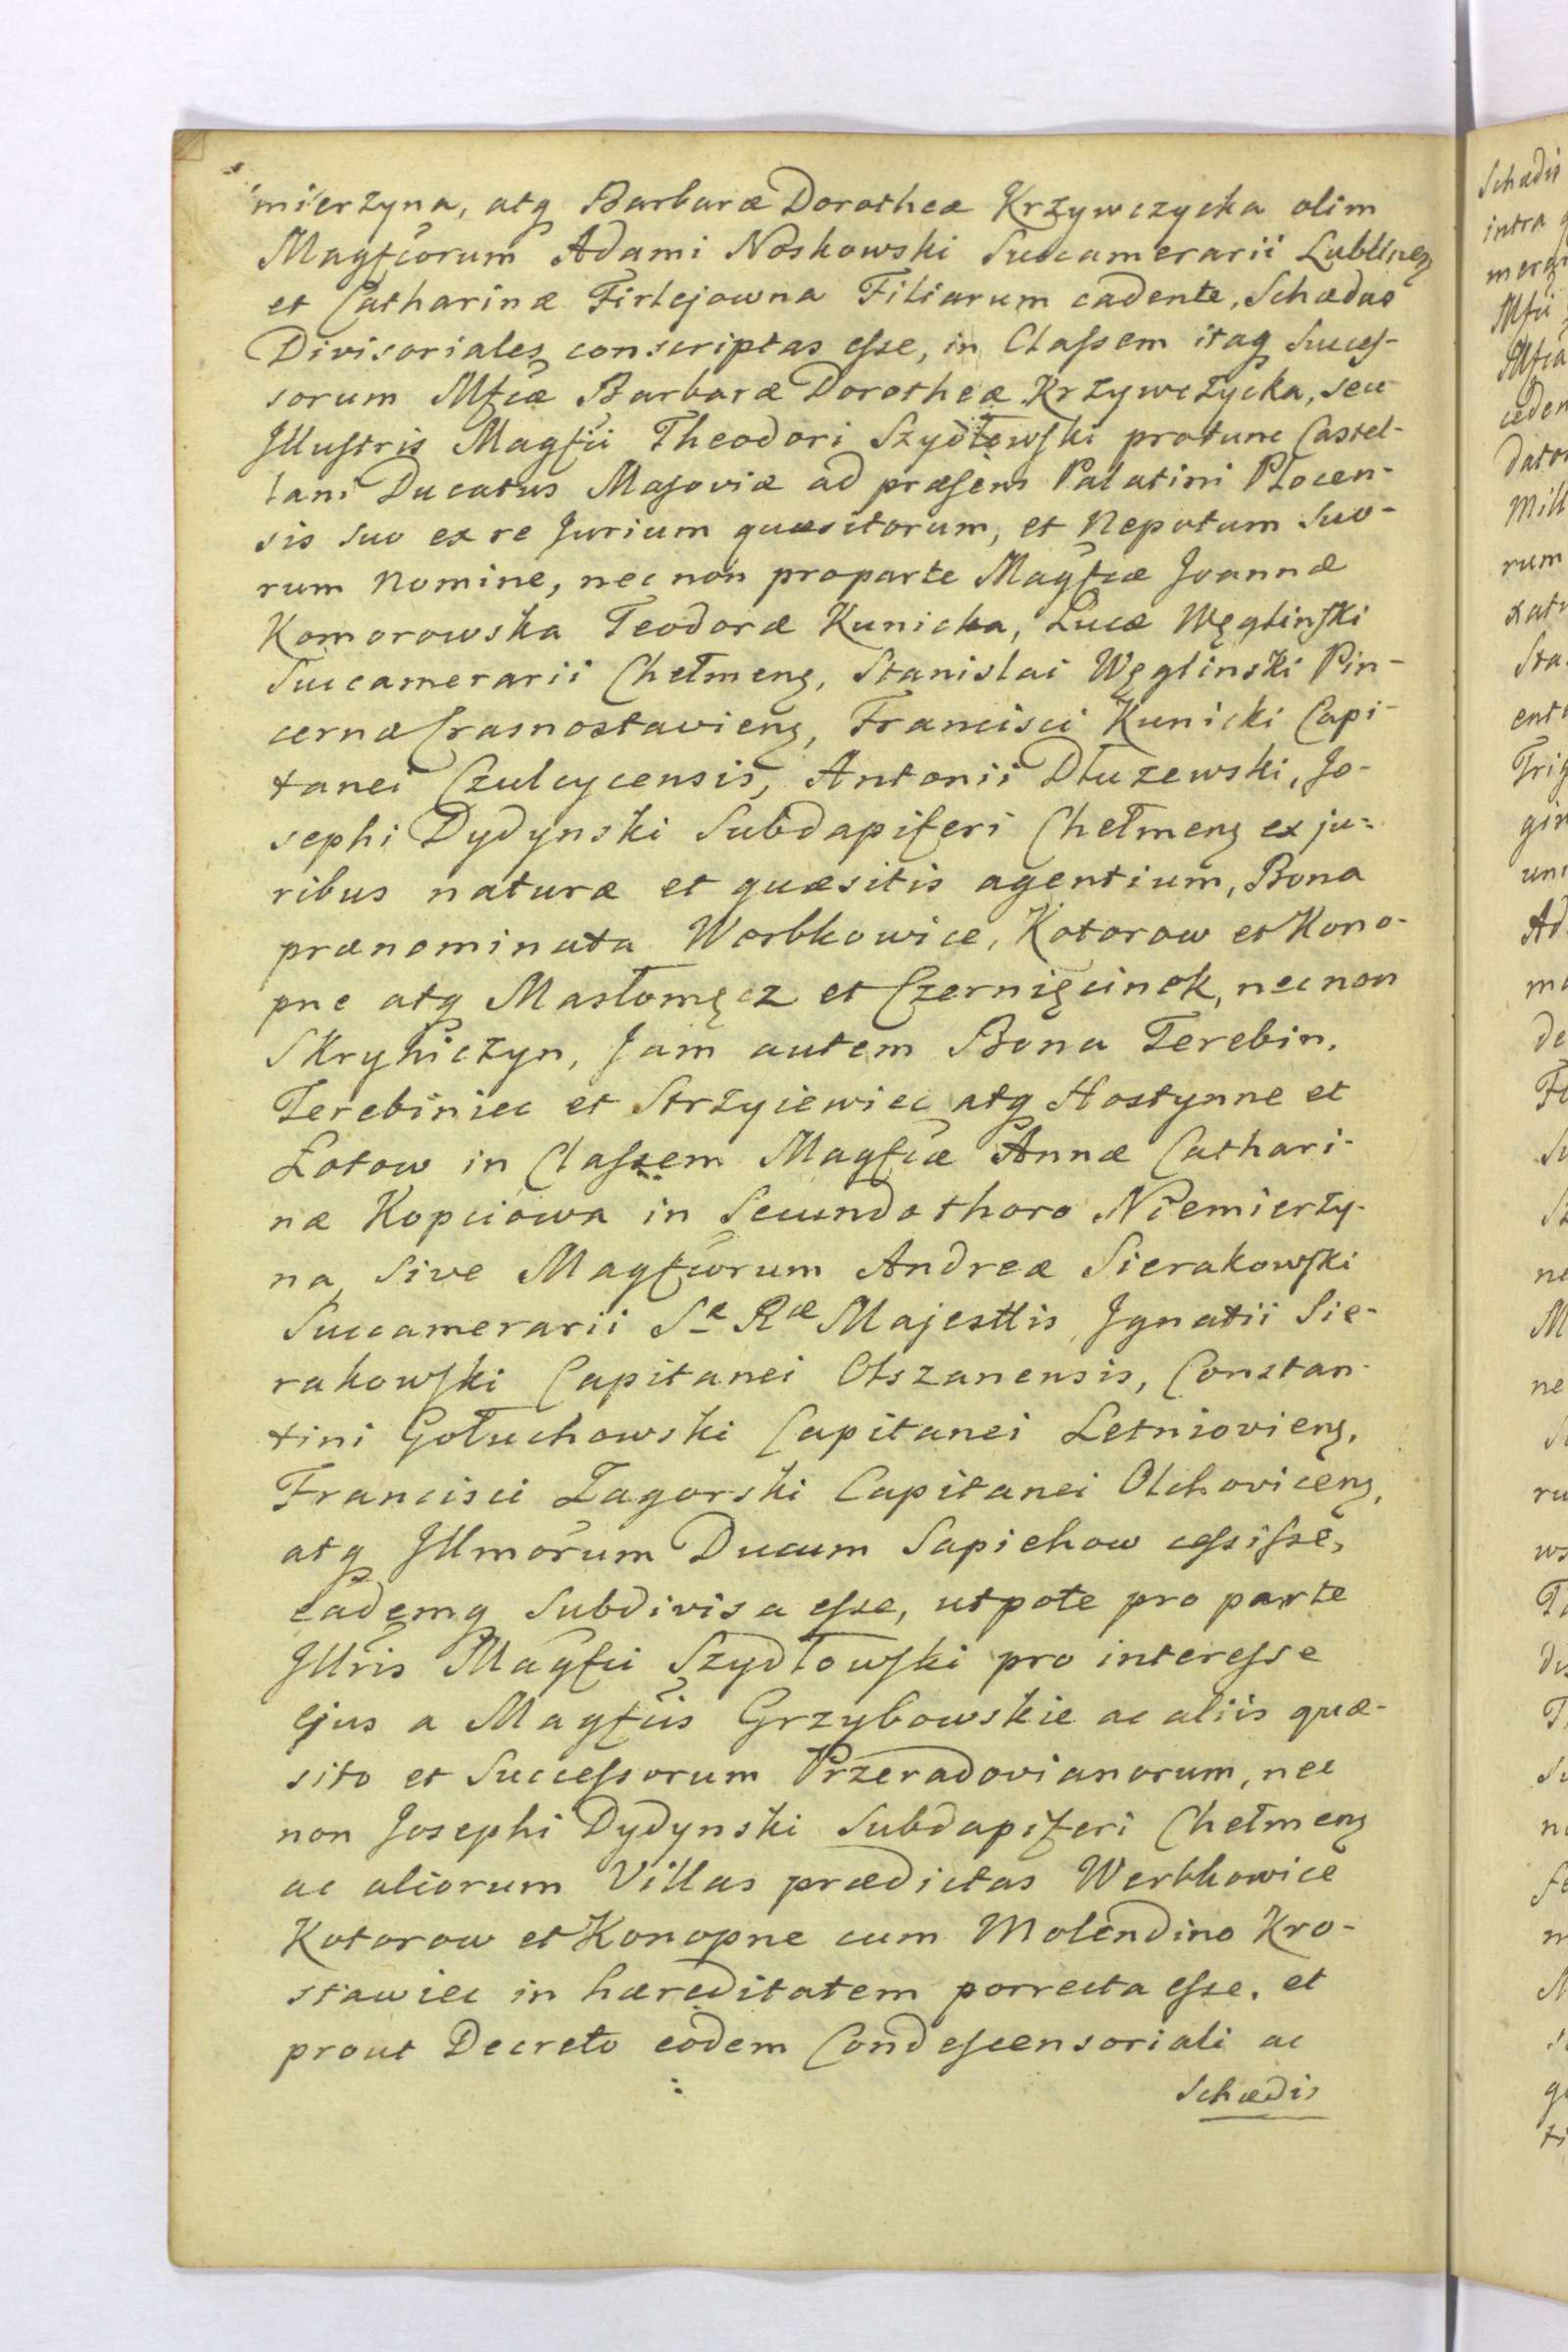 mierzyna, atq Barbaræ Dorotheæ Krzywczycka olim
Magfcorum Adami Noskowski Succamerarii Lublineȝ
et Catharinæ Firlejowna Filiarum cadente, Schædas
Divisoriales conscriptas eſse, in Claſsem itaq Succeſ-
sorum Mfcæ Barbaræ Dorotheæ Krzywczycka, seu
Jlluſtris Magfci Theodori Szydłowſki protunc Castel-
lani Ducatus Maſoviæ ad præſens Palatini Płocen-
sis suo ex re Jurium quæsitorum, et Nepotum Suo-
rum Nomine, nec non proparte Magfcæ Joannæ
Komorowska Teodoræ Kunicka, Lucæ Węglinſki
Succamerarii Chełmenȝ, Stanislai Węglinski Pin-
cernæ Crasnostavienȝ, Francisci Kunicki Capi-
tanei Czulcycensis, Antonii Dłuzewski, Jo-
sephi Dydynski Subdapiferi Chełmenȝ ex ju=
ribus naturæ et quæsitis agentium, Bona
prænominata Worbkowice, Kotorow et Kono-
pne atq Masłomęcz et Czernięcinek, nec non
Skryhiczyn, Jam autem Bona Terebin,
Terebiniec et Strzyiewiec atq Hostynne et
Łotow in Claſsem Magfcæ Annæ Cathari-
næ Kopciowa in Secundo thoro Niemierzy-
na, Sive Magfcorum Andreæ Sierakowſki
Succamerarii Sæ Ræ Majesttis, Jgnatii Sie-
rakowſki Capitanei Olszanensis, Constan-
tini Gołuchowski Capitanei Letniovienȝ,
Francisci Zagorski Capitanei Olchovicenȝ,
atq Jllmorum Ducum Sapiehow ceſsiſse,
eademq Subdivisa eſse, utpote pro parte
Jllris Magfci Szydłowſki pro intereſse
ejus a Magfcis Grzybowskie ac aliis quæ-
sito et Succeſsorum Przeradovianorum, nec
non Josephi Dydynski Subdapiferi Chełmenȝ
ac aliorum Villas prædictas Werbkowice
Kotorow et Konopne cum Molendino Kro-
stawiec in hæreditatem porrecta eſse, et
prout Decreto eodem Condeſcensoriali ac
Schædis